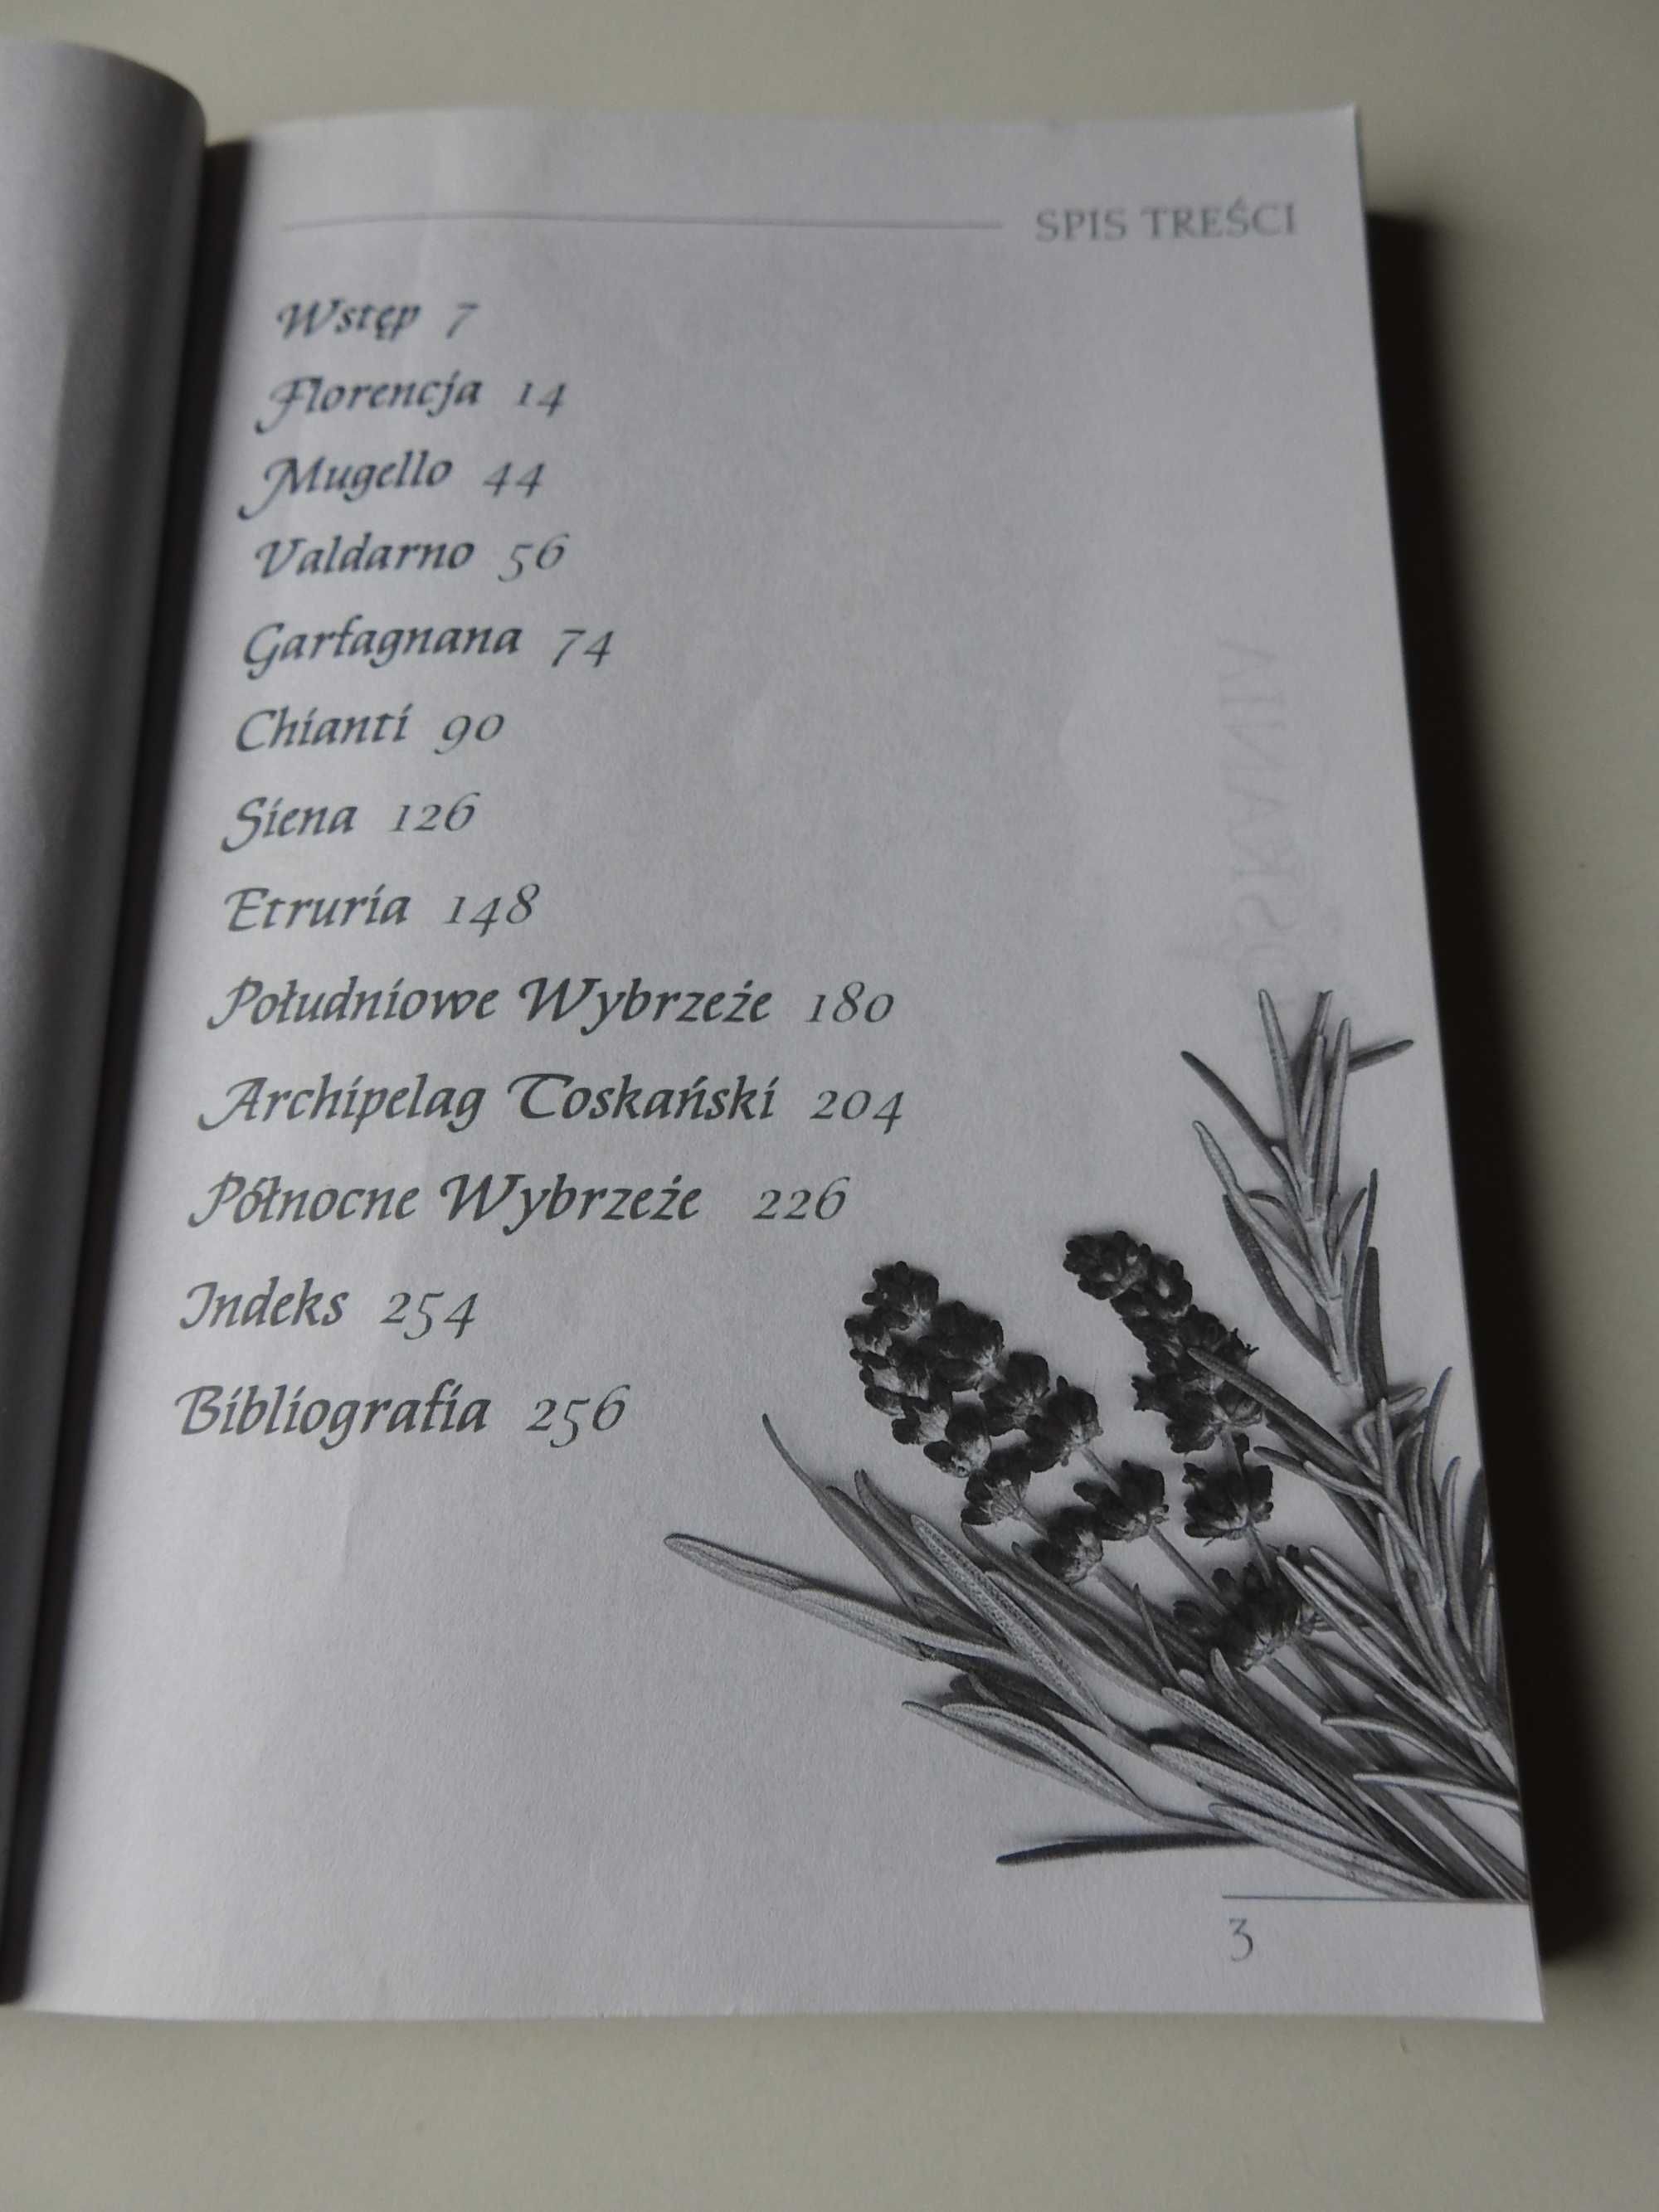 SPIS TREŚCI
Wstęp 7
Florencja 14
Mugello 44
Valdarno 56
Garfagnana 74
Chianti 90
Siena 126
Etruria 148
Południowe Wybrzeże 180
Archipelag Toskański 204
Północne Wybrzeże 226
Indeks 254
Bibliografia 256
3